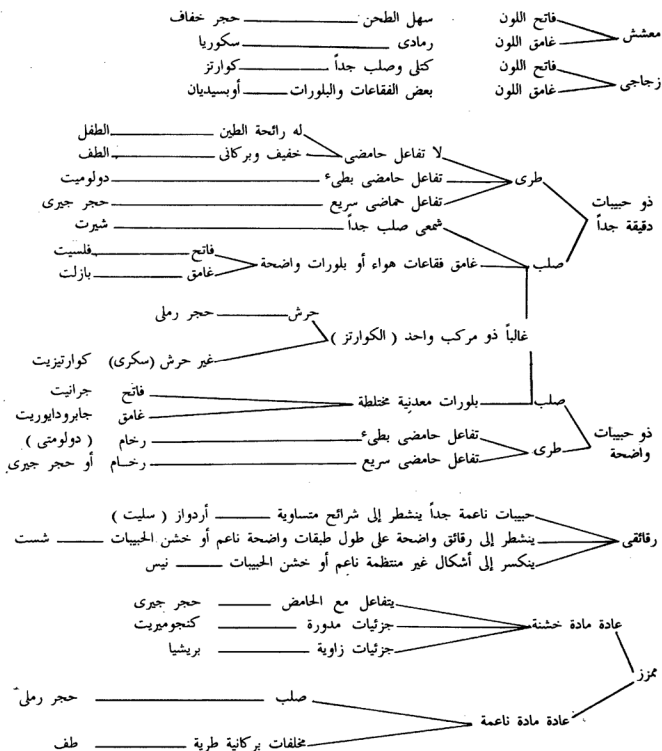 معشش
فاتح اللون سهل الطحن حجر خفاف
غامق اللون رمادى سكوريا
زجاجى
فاتح اللون كتلى وصلب جداً كوارتز
غامق اللون بعض الفقاعات والبلورات أوبسيديان
ذو حبيبات دقيقة جداً
طرى
لا تفاعل حامضى
له رائحة الطين الطفل
خفيف وبركانى الطف
تفاعل حامضى بطىء دولوميت
تفاعل حماضى سريع حجر جيرى
صلب
شمعى صلب جداً شيرت
غامق فقاعات هواء أو بلورات واضحة
فاتح فلسيت
غامق بازلت
غالباً ذو مركب واحد ( الكوارتز )
حرش حجر رملى
غير حرش (سكرى) كوارتيزيت
ذو حبيبات واضحة
صلب
بلورات معدنية مختلطة
فاتح جرانيت
غامق جابرودايوريت
طرى
تفاعل حامضى بطىء رخام ( دولومتى )
تفاعل حامضى سريع رخـام أو حجر جيرى
رقائقى
حبيبات ناعمة جداً ينشطر إلى شرائح متساوية أردواز ( سليت )
ينشطر إلى رقائق واضحة على طول طبقات واضحة ناعم أو خشن الحبيبات شست
ينكسر إلى أشكال غير منتظمة ناعم أو خشن الحبيبات نيس
ممزز
عادة مادة خشنة
يتفاعل مع الحامض حجر جيرى
جزئيات مدورة كنجوميريت
جزئيات زاوية بريشيا
عادة مادة ناعمة
صلب حجر رملى
مخلفات بركانية طرية طف